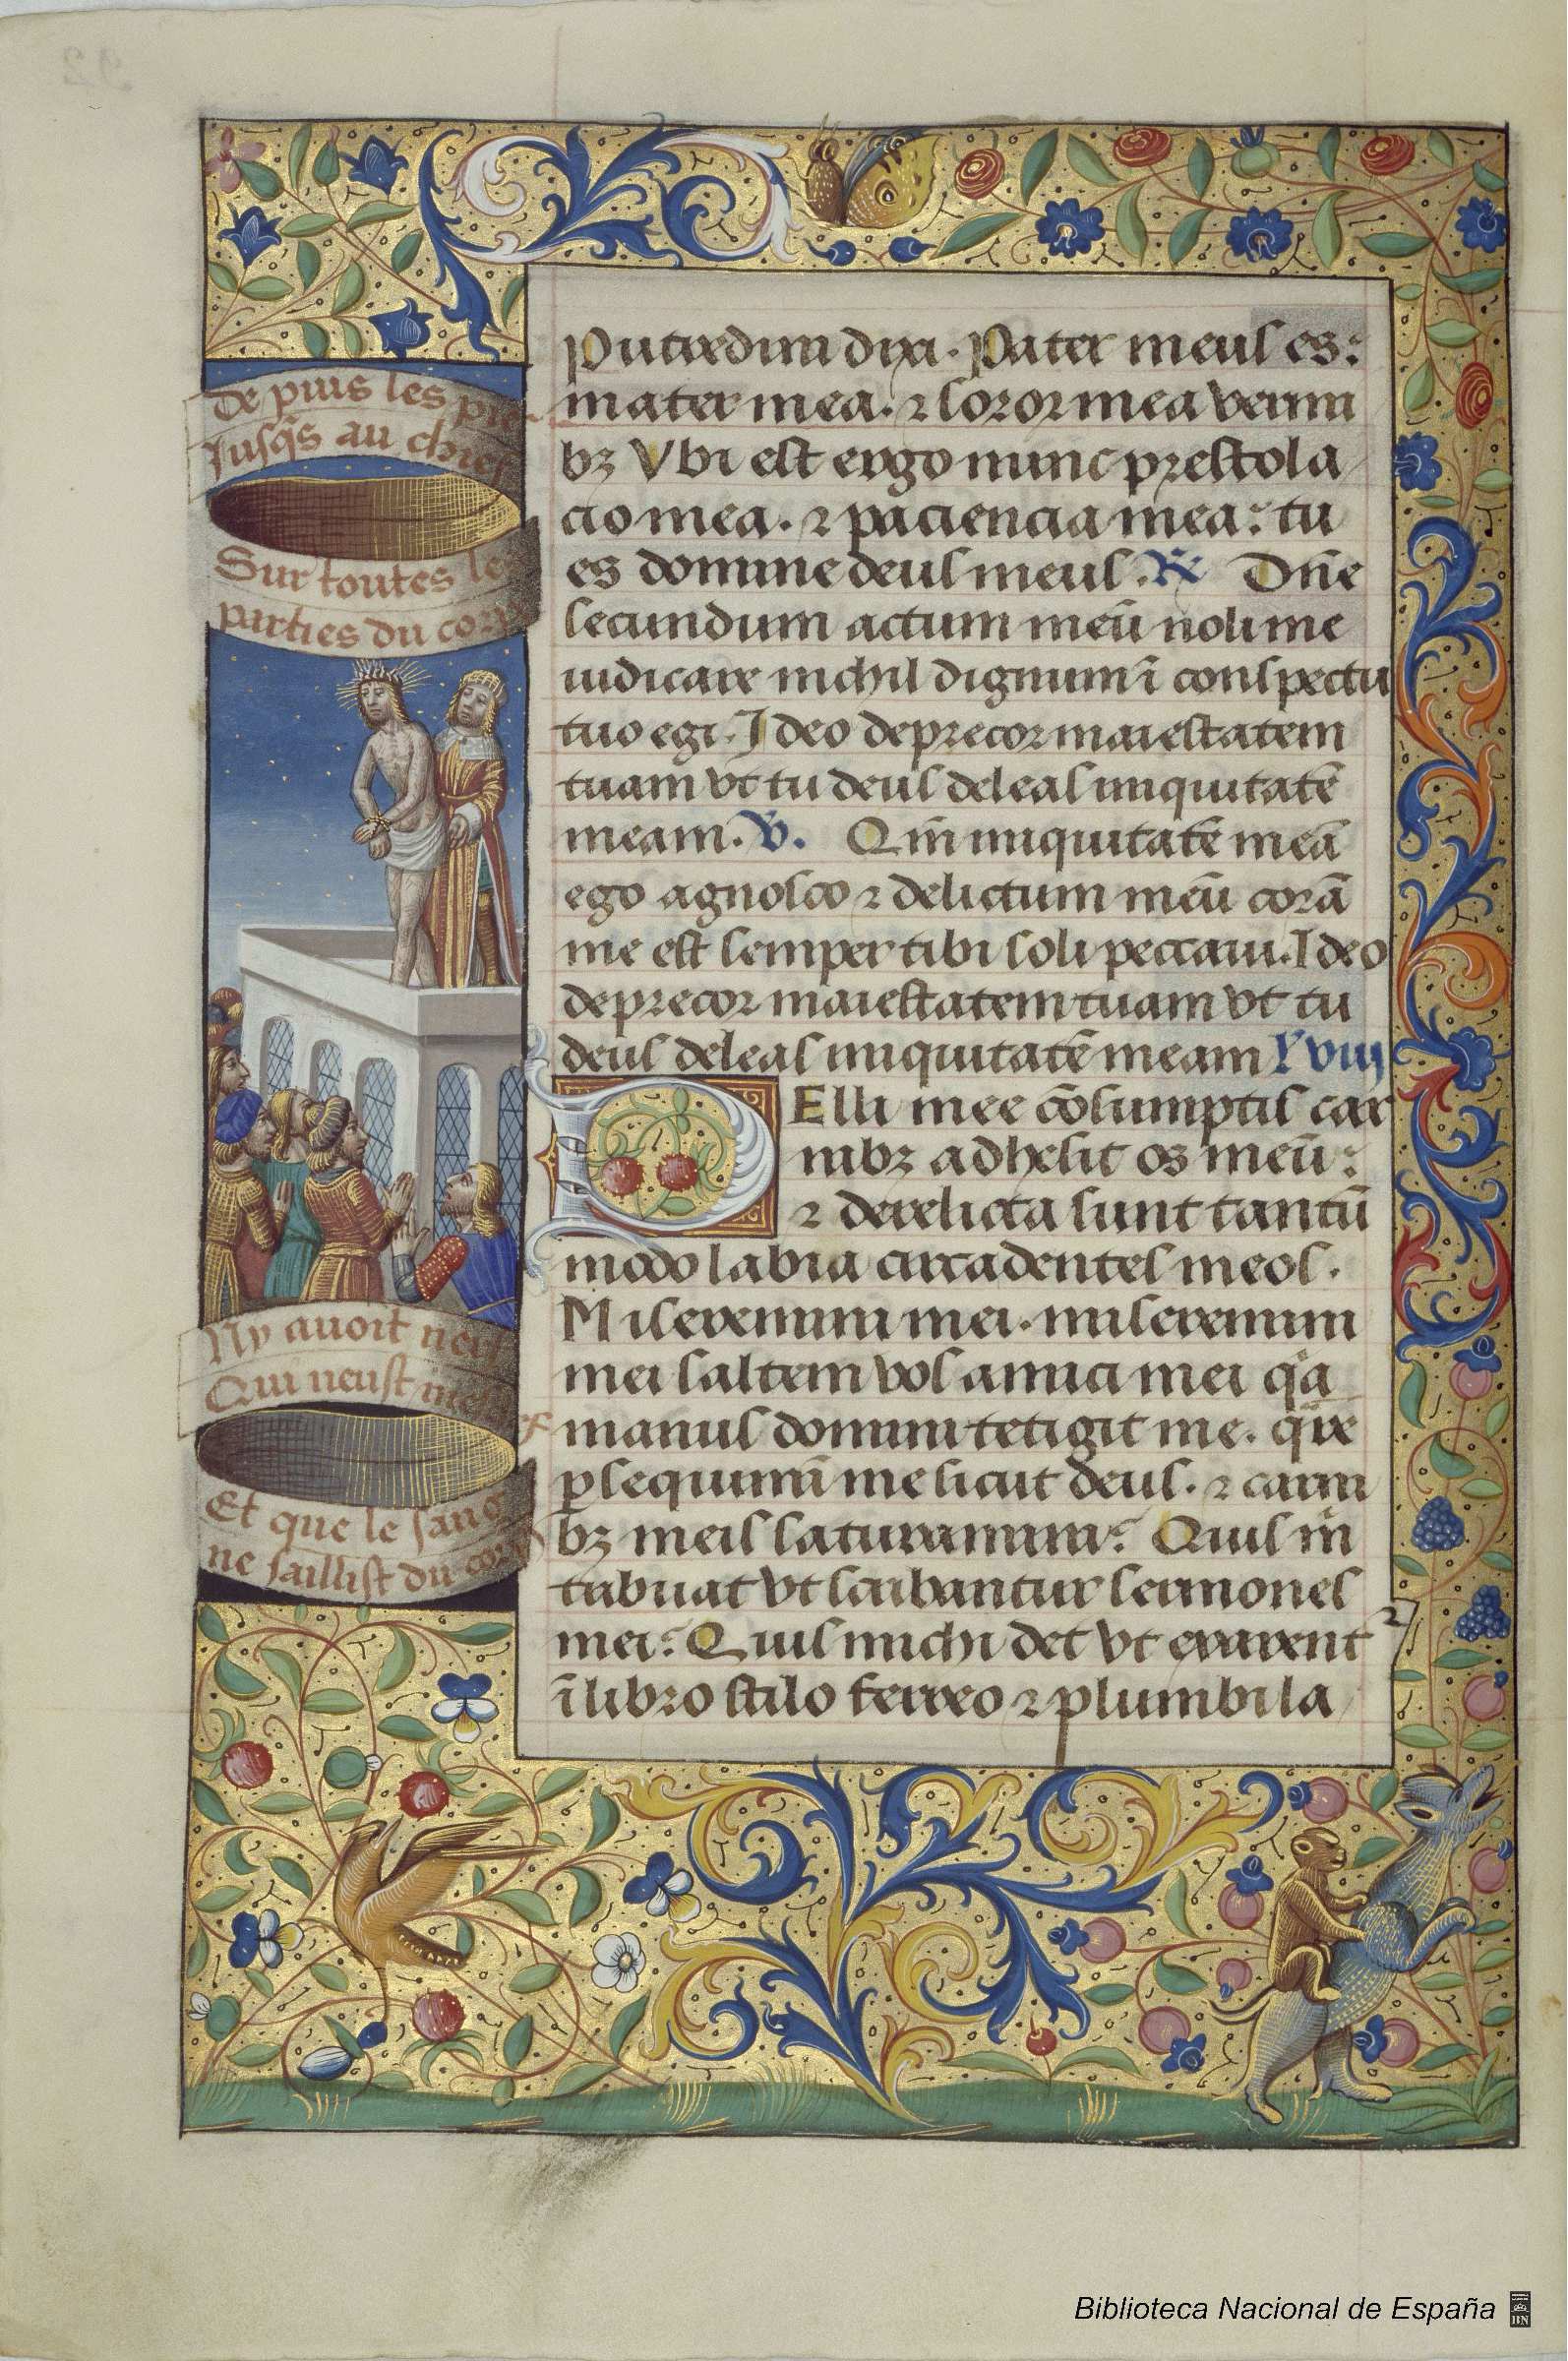 De puis les pie
Jusq̃s au chief
Sur toutes les
parties du corps
Ny avoit nerf
Qui neust
Et que le sanc
ne saillist du corps
Putredini dixi. Pater meus es:
mater mea. ⁊ soror mea vermi
bꝫ Vbi est ergo nunc prestola
cio mea. ⁊ paciencia mea: tu
es domine deus meus. ℟ Dñe
secundum actum meũ noli me
iudicare nichil dignum ĩ conspectu
tuo egi. Ideo deprecor maiestatem
tuam vt tu deus deleas iniquitatẽ
meam. ℣. Qm̃ iniquitatẽ meã
ego agnosco ⁊ delictum meũ corã
me est semper tibi soli peccaui. Ideo
deprecor maiestatem tuam vt tu
deus deleas iniquitatẽ meam
PElli mee cõsumptis car
nibꝫ adhesit os meũ:
⁊ derelicta sunt tantũ
modo labia circa dentes meos.
Miseremini mei. miseremini
mei saltem vos amici mei q̇a
manus domini tetigit me. q̇re
ꝑsequimĩ me sicut deus. ⁊ carni
bꝫ meis saturamini: Quis m̃
tribuat vt scribantur sermones
mei: Quis michi det vt exarent̃
ĩ libro stilo ferreo ⁊ plumbi la
Biblioteca Nacional de España